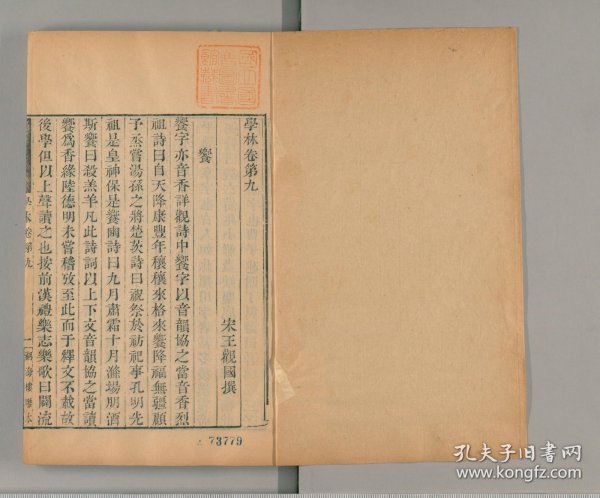 學林卷第九
宋王觀國撰
饗
饗字亦音香詳觀詩中饗字以音韻協之當音香烈
祖詩曰自天降康豐年穰穰來格來饗降福無疆顧
予烝嘗湯孫之將楚茨詩曰祝祭於祊祀事孔明先
祖是皇神保是饗豳詩曰九月肅霜十月滌場朋酒
斯饗曰殺羔羊凡此詩詞以上下文音韻協之當讀
饗為香緣陸德明未嘗稽攷至此而于釋文不載故
後學但以上聲讀之也按前漢禮樂志樂歌曰闢流
學林卷第九
一
湖海樓雕本
73779
孔夫子旧书网
www.kongfz.com